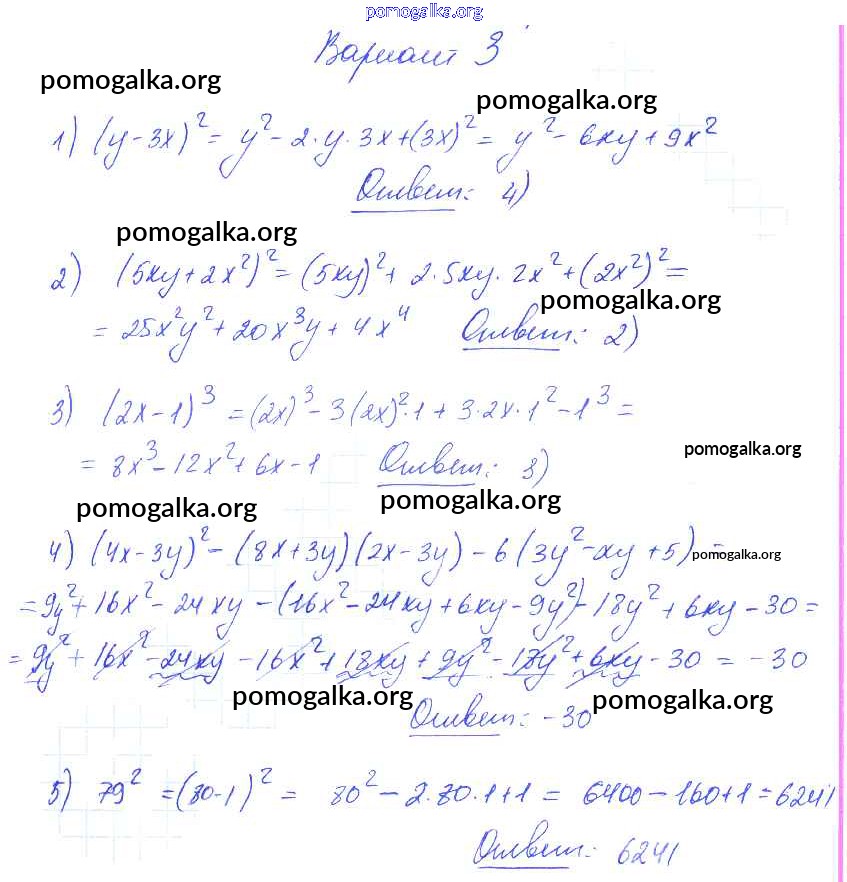 pomogalka.org
Вариант 3
pomogalka.org
pomogalka.org
1) (y-3x)² = y² - 2·y·3x + (3x)² = y² - 6xy + 9x²
Ответ: 4)
pomogalka.org
2) (5xy + 2x²)² = (5xy)² + 2·5xy·2x² + (2x²)² =
pomogalka.org
= 25x²y² + 20x³y + 4x⁴ Ответ: 2)
3) (2x-1)³ = (2x)³ - 3(2x)²·1 + 3·2x·1² - 1³ =
pomogalka.org
= 8x³ - 12x² + 6x - 1 Ответ: 3)
pomogalka.org
pomogalka.org
4) (4x-3y)² - (8x+3y)(2x-3y) - 6(3y² - xy + 5) =
pomogalka.org
= 9y² + 16x² - 24xy - (16x² - 24xy + 6xy - 9y²) - 18y² + 6xy - 30 =
= 9y² + 16x² - 24xy - 16x² + 18xy + 9y² - 18y² + 6xy - 30 = -30
pomogalka.org
pomogalka.org
Ответ: -30
5) 79² = (80-1)² = 80² - 2·80·1 + 1 = 6400 - 160 + 1 = 6241
Ответ: 6241